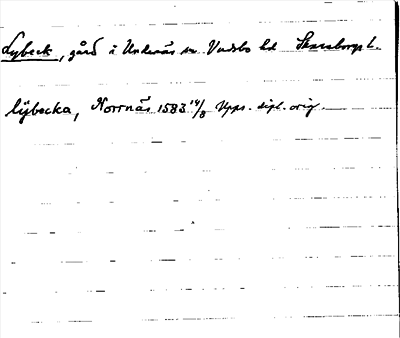 Lybeck, gård i Undenäs sn Vadsbo hd Skaraborgs l.
lÿbecka, Norrnäs 1583 14/8 Upps. dipl. orig.